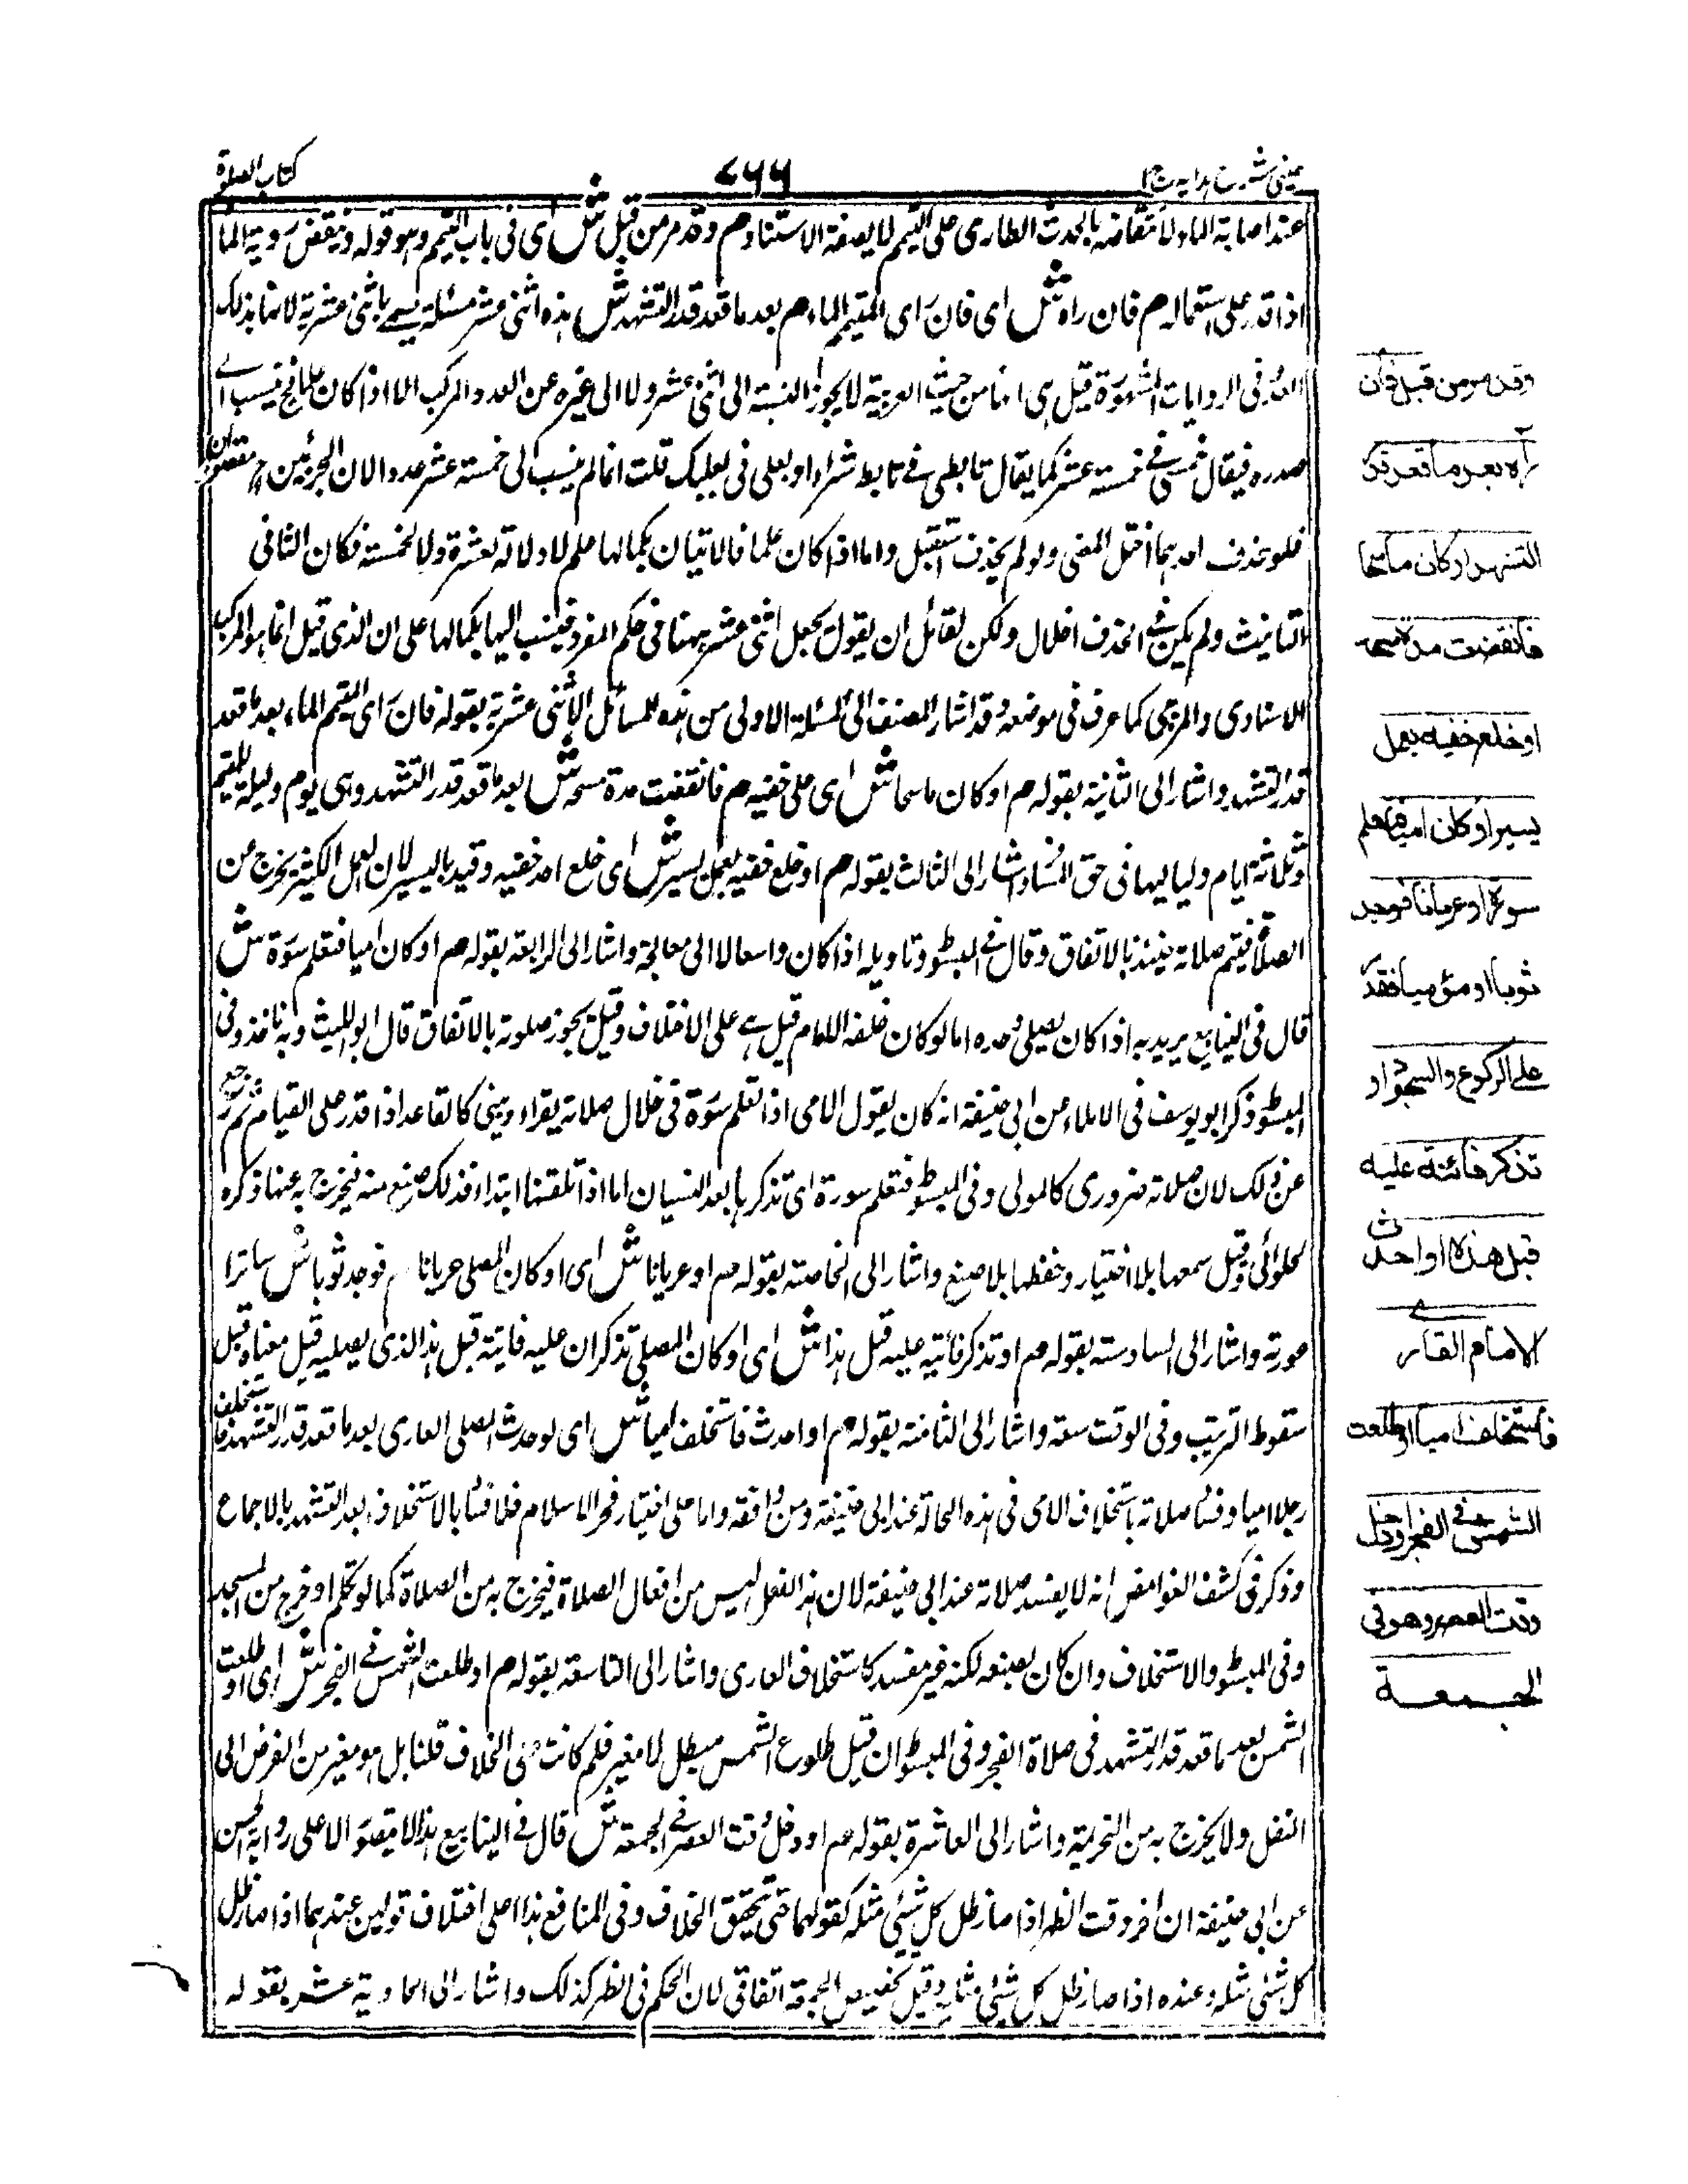 عینی شرح ہدایہ ج ۱
۷۶۶
کتاب الصلوۃ
عند اصابة الماء ولا تنقاضه بالحدث الطاری على التيمم لا بصفة الاستناد م وقد مر من قبل ش ای فی باب التيمم وهو قوله وينقض رؤية الماء
اذا قدر على استعماله م فان راه ش ای فان رای المتيمم الماء م بعد ما قعد قدر التشهد ش هذه اثنی عشر مسئلة يسمى باثنی عشرية لانها بذلك
العدد فی الروايات المشهورة قيل هی انها من حيث العربية لا يجوز النسبة الى اثنی عشر ولا الى غيره عن العدد المركب الا اذا كان علما فح ينسب الى
صدره فيقال خمسی فی خمسة عشر كما يقال تابطی فی تابط شرا او بعلی فی بعلبك قلت انما لم ينسب الى خمسة عشر عددا لان الجزئين ح مقصودان
فلو حذف احدهما اختل المعنى ولو لم يحذف استثقل واما اذا كان علما فالاتيان بكمالها علم لا دلالة لعشرة ولا لخمسة فكان الثانی
التانيث ولم يكن فی الحذف اخلال ولكن لقائل ان يقول يجعل اثنی عشر ههنا فی حكم المفرد فينسب اليها بكمالها على ان الذی قيل انما هو المركب
الاسنادی والمزجی كما عرف فی موضعه وقد اشار المصنف الى المسئلة الاولى من هذه المسائل الاثنی عشرية بقوله فان رای المتيمم الماء بعد ما قعد
قدر التشهد واشار الى الثانية بقوله م او كان ماسحا ش ای على خفيه م فانقضت مدة مسحه ش بعد ما قعد قدر التشهد وهی يوم وليلة للمقيم
وثلاثة ايام ولياليها فی حق المسافر واشار الى الثالث بقوله م او خلع خفيه بعمل يسير ش ای خلع احد خفيه وقيد باليسير لان العمل الكثير يخرج عن
الصلاة فيتم صلاته حينئذ بالاتفاق وقال فی المبسوط وتاويله اذا كان واسعا لا الى معالجة واشار الى الرابعة بقوله م او كان اميا فتعلم سورة ش
قال فی الينابيع يريد به اذا كان يصلی وحده اما لو كان خلف الامام قيل هی على الاختلاف وقيل يجوز صلوته بالاتفاق قال ابو الليث وبه ناخذ وفی
المبسوط ذكر ابو يوسف فی الاملاء عن ابی حنيفة انه كان يقول الامی اذا تعلم سورة فی خلال صلاته يقراء ويبنی كالقاعد اذا قدر على القيام ثم رجع
عن ذلك لان صلاته ضروری كالمولى وفی المبسوط فتعلم سورة ای تذكر بها بعد النسيان اما اذا تلقنها ابتداء فذلك صنع منه فيخرج به عنها ذكره
الحلوائی وقيل سمعها بلا اختيار وحفظها بلا صنع واشار الى الخامسة بقوله م او عريانا ش ای او كان المصلی عريانا م فوجد ثوبا ش ساترا
عورته واشار الى السادسة بقوله م او تذكر فائتة عليه قبل هذا ش ای او كان المصلی تذكر ان عليه فايتة قبل هذا الذی يصليه قيل معناه قبل
سقوط الترتيب وفی الوقت سعة واشار الى الثامنة بقوله م او احدث فاستخلف اميا ش ای لو حدث المصلی القاری بعد ما قعد قدر التشهد فاستخلف
رجلا اميا وفسد صلاته باستخلاف الامی فی هذه الحالة عند ابی حنيفة ومن وافقه واما على اختيار فخر الاسلام فلا فساد بالاستخلاف بعد التشهد بالاجماع
وذكر فی كشف الغوامض انه لا يفسد صلاته عند ابی حنيفة لان هذا الفعل ليس من افعال الصلاة فيخرج به من الصلاة كما لو تكلم او خرج من المسجد
وفی المبسوط والاستخلاف وان كان بصنعه لكنه غير مفسد كاستخلاف القاری واشار الى التاسعة بقوله م او طلعت الشمس فی الفجر ش ای او طلعت
الشمس بعد ما قعد قدر التشهد فی صلاة الفجر وفی المبسوط ان قيل طلوع الشمس مبطل لا مغير فلم كانت على الخلاف قلنا بل هو مغير من الفرض الى
النفل ولا يخرج به من التحريمة واشار الى العاشرة بقوله م او دخل وقت العصر فی الجمعة ش قال فی الينابيع هذا لا يتصور الا على رواية الحسن
عن ابی حنيفة ان اخر وقت الظهر اذا صار ظل كل شئی مثله كقولهما حتى يتحقق الخلاف وفی المنافع هذا على اختلاف قولين عندهما اذا صار ظل
كل شئی مثله وعنده اذا صار ظل كل شئی مثليه وقيل تخصيص الجمعة اتفاقی لان الحكم فی الظهر كذلك واشار الى الحادية عشر بقوله
وقد مر من قبل فان
رآه بعد ما قعد قدر
التشهد او كان ماسحا
فانقضت مدة مسحه
او خلع خفيه بعمل
يسير او كان اميا فتعلم
سورة او عريانا فوجد
ثوبا او مؤميا فقدر
على الركوع والسجود او
تذكر فائتة عليه
قبل هذه او احدث
الامام القاری
فاستخلف اميا او طلعت
الشمس فی الفجر او دخل
وقت العصر وهو فی
الجمعة